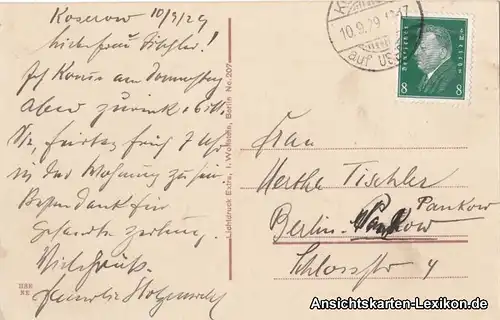 Koserow 10/9/29
Liebe Frau Tischler!
Ich komme am Donnerstag
Abend zurück + bitte
Sie, Freitag früh 7 Uhr
in der Wohnung zu sein.
Besten Dank für
gesandte Zeitung.
Viele Grüße
Familie
Lichtdruck Extra, I. Wollstein, Berlin No. 207
10.9.29
auf US
8 8
Frau
Hertha Tischler
Berlin-Pankow
Pankow
Schlossstr 4
Ansichtskarten-Lexikon.de